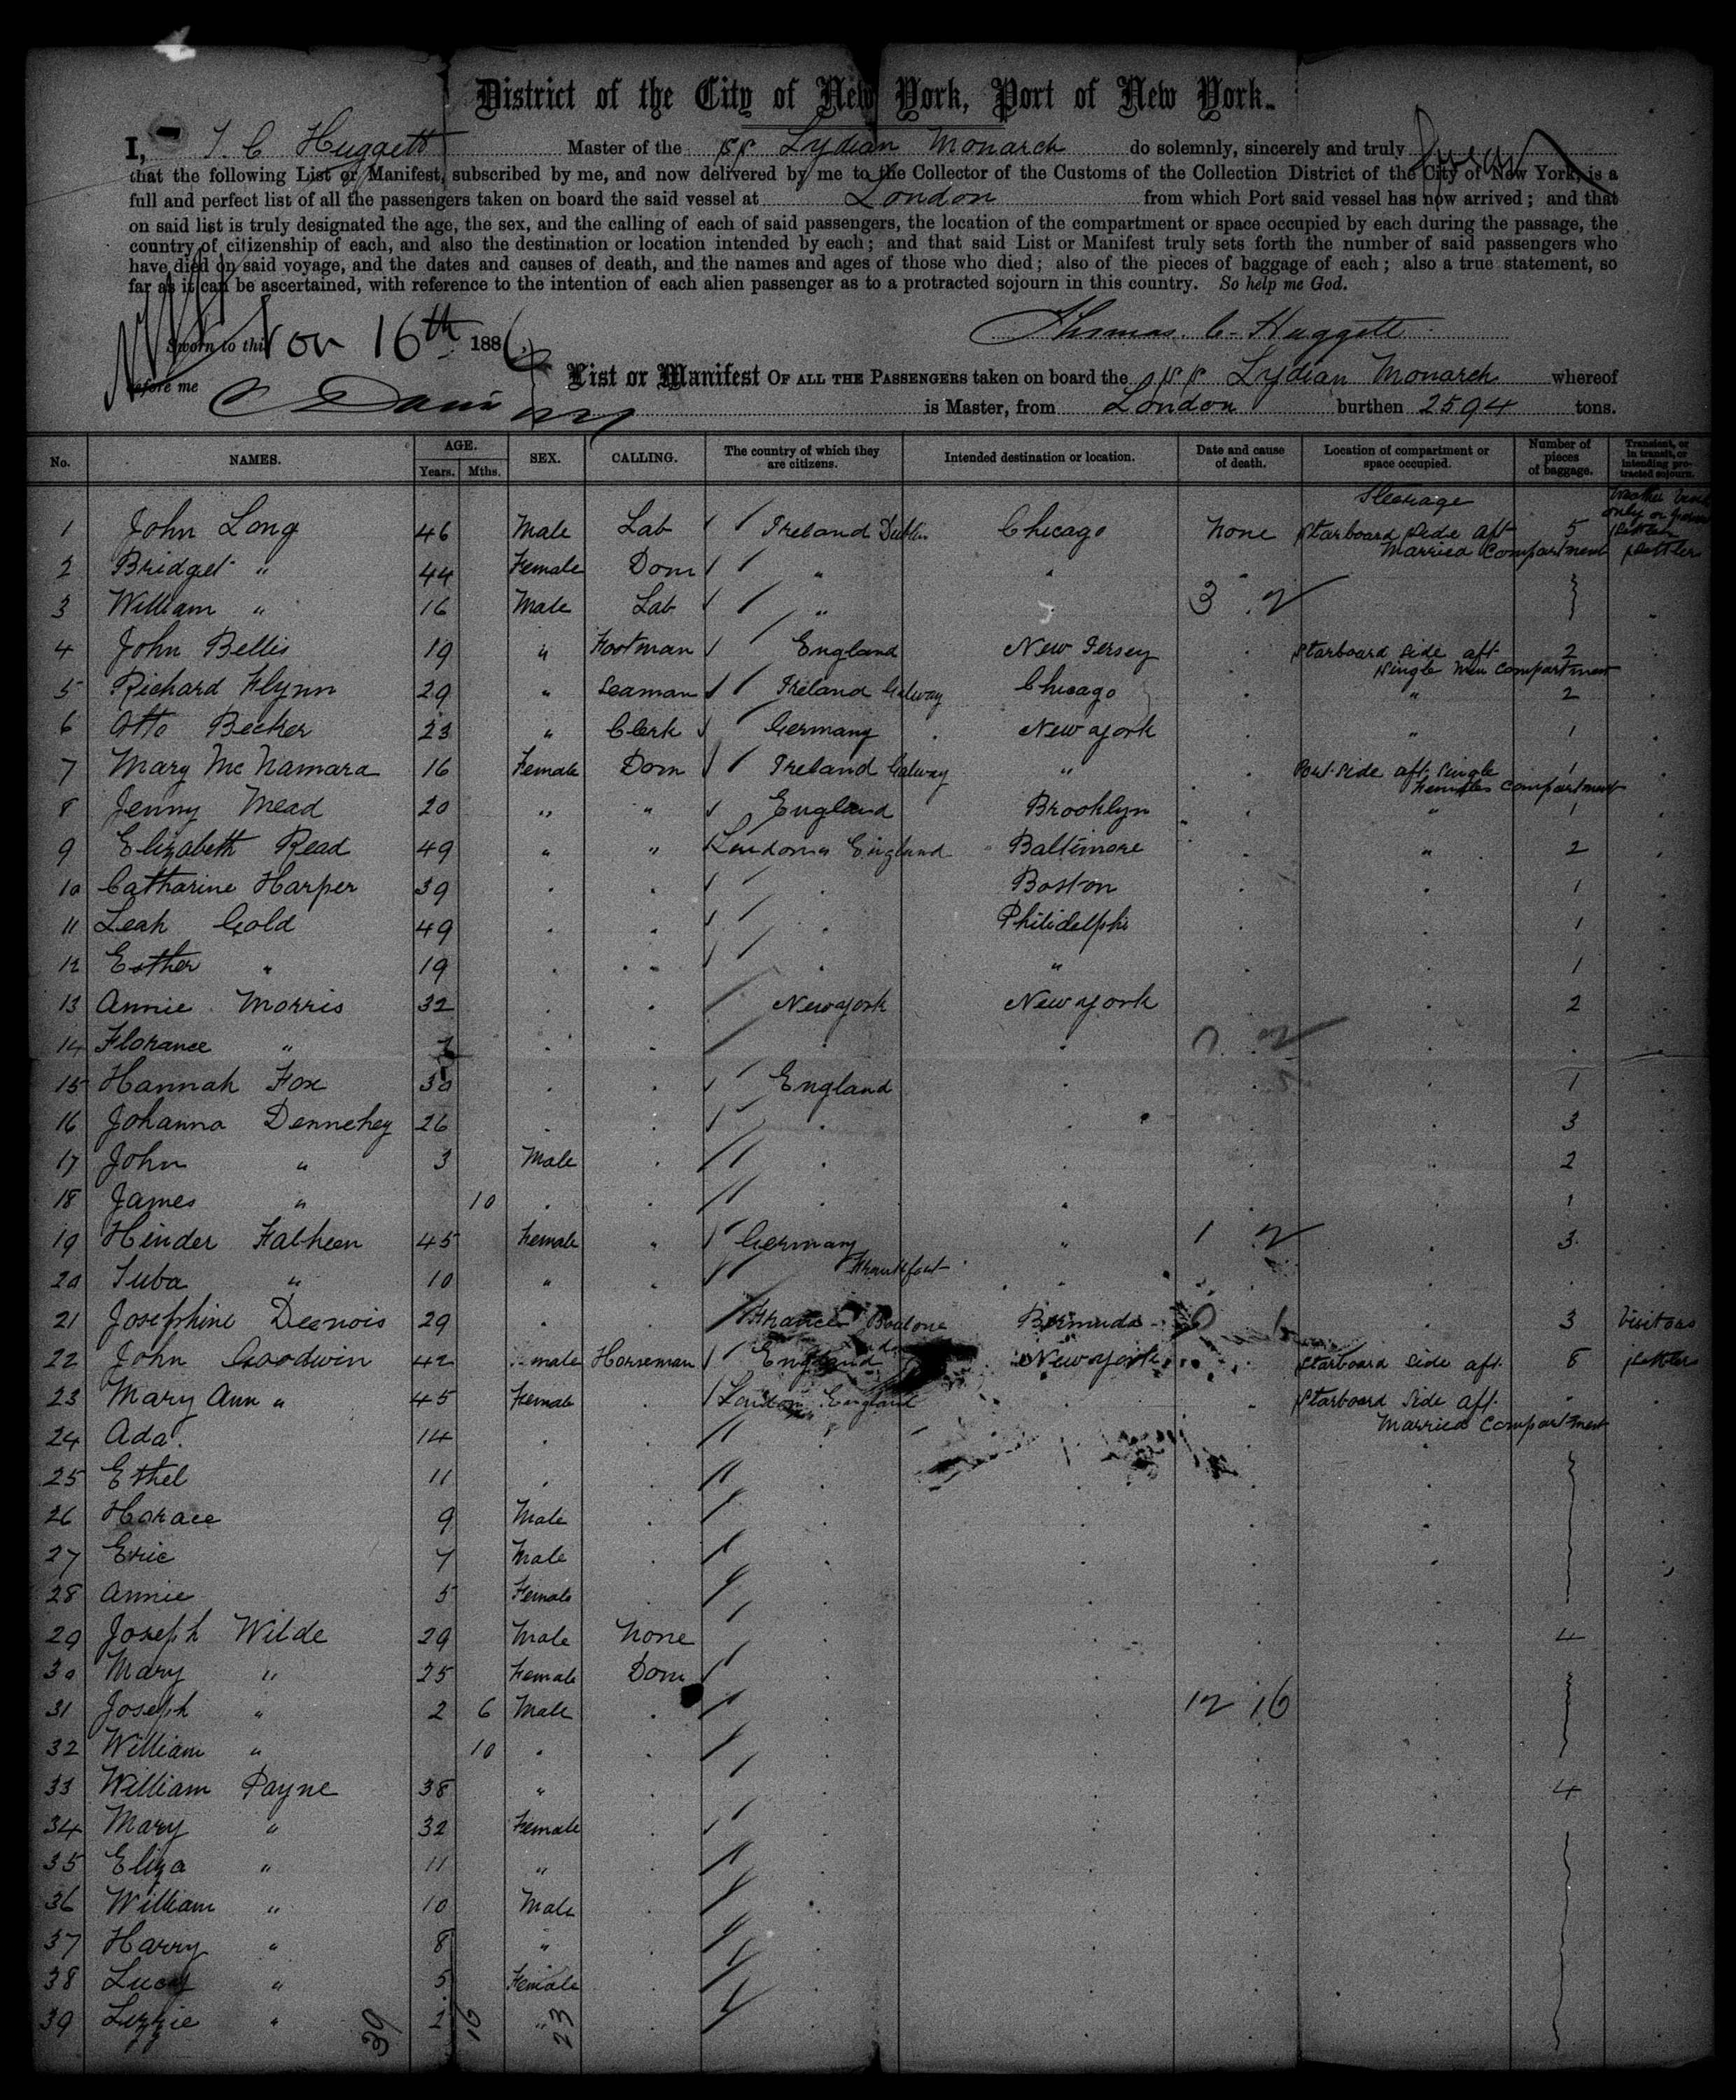 District of the City of New York, Port of New York.
I, T. C Huggett Master of the SS Lydian Monarch do solemnly, sincerely and truly Swear
that the following List or Manifest, subscribed by me, and now delivered by me to the Collector of the Customs of the Collection District of the City of New York, is a
full and perfect list of all the passengers taken on board the said vessel at London from which Port said vessel has now arrived; and that
on said list is truly designated the age, the sex, and the calling of each of said passengers, the location of the compartment or space occupied by each during the passage, the
country of citizenship of each, and also the destination or location intended by each; and that said List or Manifest truly sets forth the number of said passengers who
have died on said voyage, and the dates and causes of death, and the names and ages of those who died; also of the pieces of baggage of each; also a true statement, so
far as it can be ascertained, with reference to the intention of each alien passenger as to a protracted sojourn in this country. So help me God.
Sworn to this 16th 1886 Thomas. C. Huggett
before me
List or Manifest OF ALL THE PASSENGERS taken on board the SS Lydian Monarch whereof
is Master, from London burthen 2594 tons.
No. NAMES. AGE. Years. Mths. SEX. CALLING. The country of which they are citizens. Intended destination or location. Date and cause of death. Location of compartment or space occupied. Number of pieces of baggage. Transient, or in transit, or intending protracted sojourn.
Steerage
1 John Long 46 Male Lab Ireland Dublin Chicago None Starboard Side Aft 5 Settler
Married Compartment
2 Bridget " 44 Female Dom " " Settler
3 William " 16 Male Lab " " 3 2
4 John Bellis 19 " Footman England New Jersey Starboard side aft 2
Single Men Compartment
5 Richard Flynn 29 " Seaman Ireland Galway Chicago " 2
6 Otto Becker 23 " Clerk Germany New York " 1
7 Mary McNamara 16 Female Dom Ireland Galway " Port side aft Single 1
Females Compartment
8 Jenny Mead 20 " " England Brooklyn " 1
9 Elizabeth Read 49 " " London England Baltimore " 2
10 Catharine Harper 39 Boston 1
11 Leah Gold 49 Philidelphi 1
12 Esther " 19 " 1
13 Annie Morris 32 New York New York 2
14 Florance "
15 Hannah Fox 30 England 1
16 Johanna Dennehey 26 3
17 John " 3 Male 2
18 James " 10 1
19 Hinder Falheen 45 Female " Germany " 1 2 3
Frankfort
20 Tuba " 10 "
21 Josephine Deenois 29 France Bermuda 3 Visitors
22 John Goodwin 42 male Horseman England New York Starboard side aft 8 Settler
23 Mary Ann " 45 Female London England Starboard Side aft "
Married Compartment
24 Ada 14
25 Ethel 11
26 Horace 9 Male
27 Eric 7 Male
28 Annie 5 Female
29 Joseph Wilde 29 Male None 4
30 Mary " 25 Female Dom
31 Joseph " 2 6 Male 12 16
32 William " 10
33 William Payne 38 " 4
34 Mary " 32 Female
35 Eliza " 11 "
36 William " 10 Male
37 Harry " 8 "
38 Lucy " 5 Female
39 Lizzie " 2 "
39 16 23